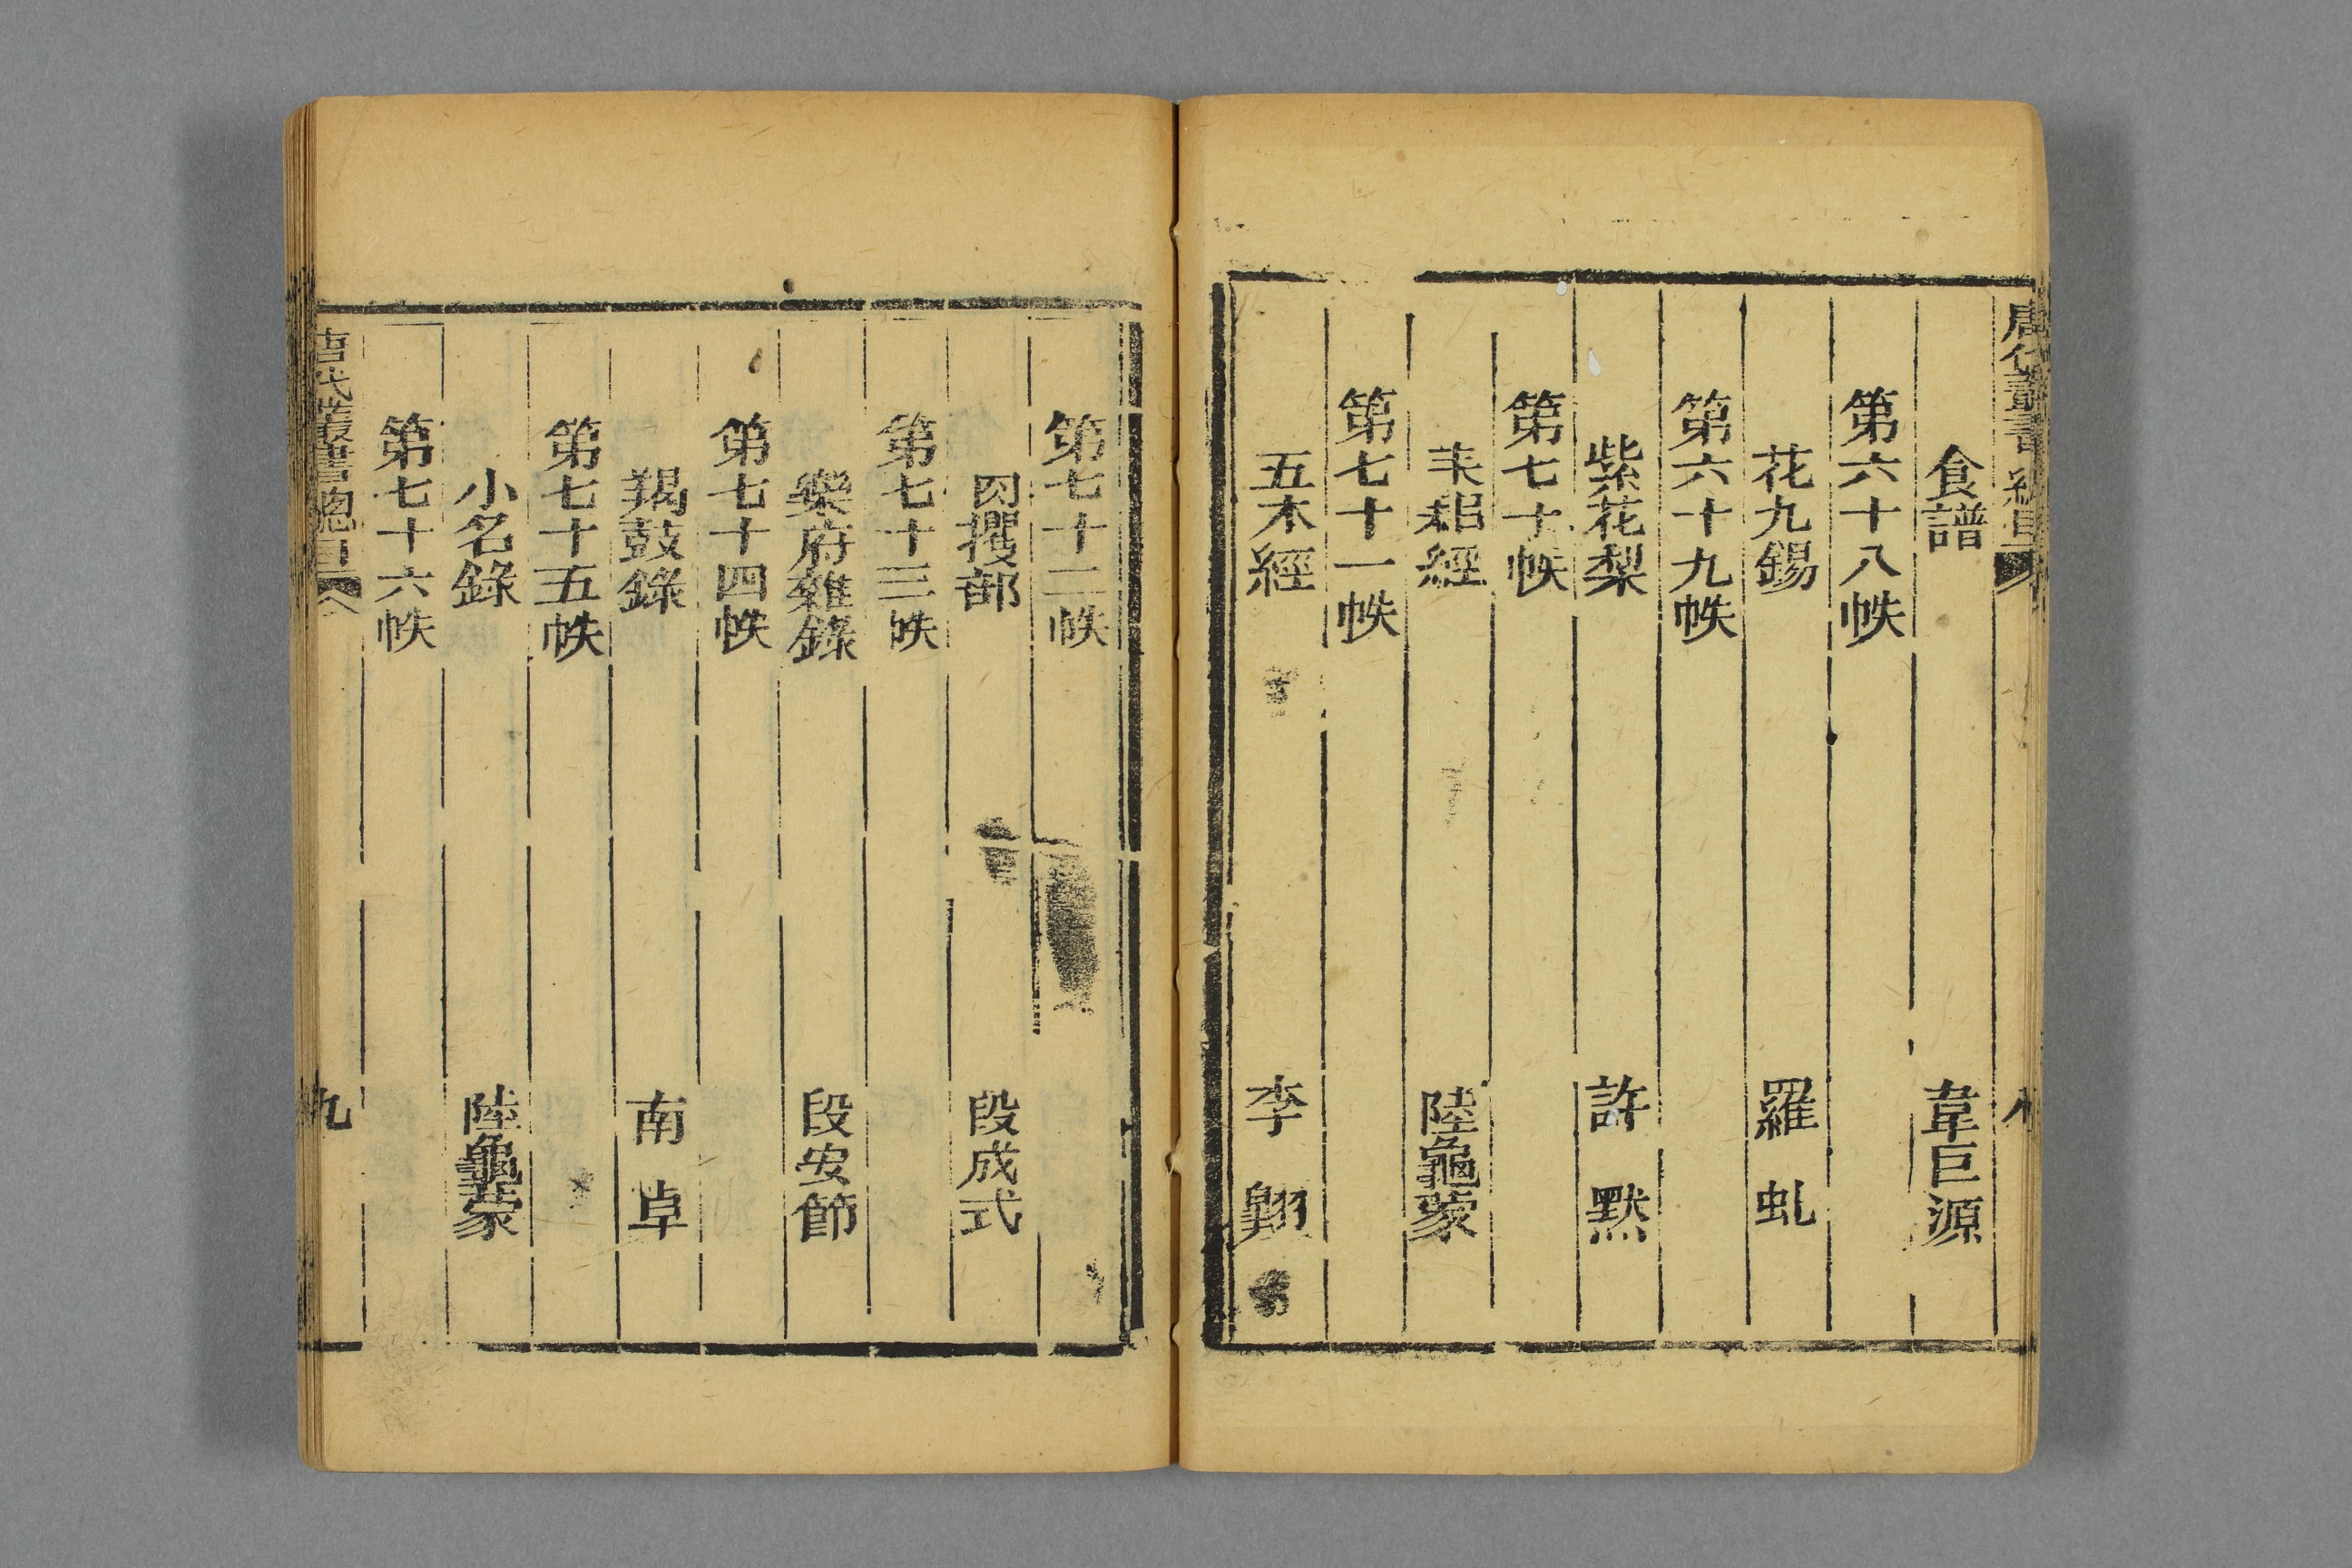 唐代叢書總目
食譜 韋巨源
第六十八帙
花九錫 羅虬
第六十九帙
紫花梨 許默
第七十帙
耒耜經 陸龜蒙
第七十一帙
五木經 李翱
第七十二帙
肉攫部 段成式
第七十三帙
樂府雜錄 段安節
第七十四帙
羯鼓錄 南卓
第七十五帙
小名錄 陸龜蒙
第七十六帙
唐代叢書總目 九